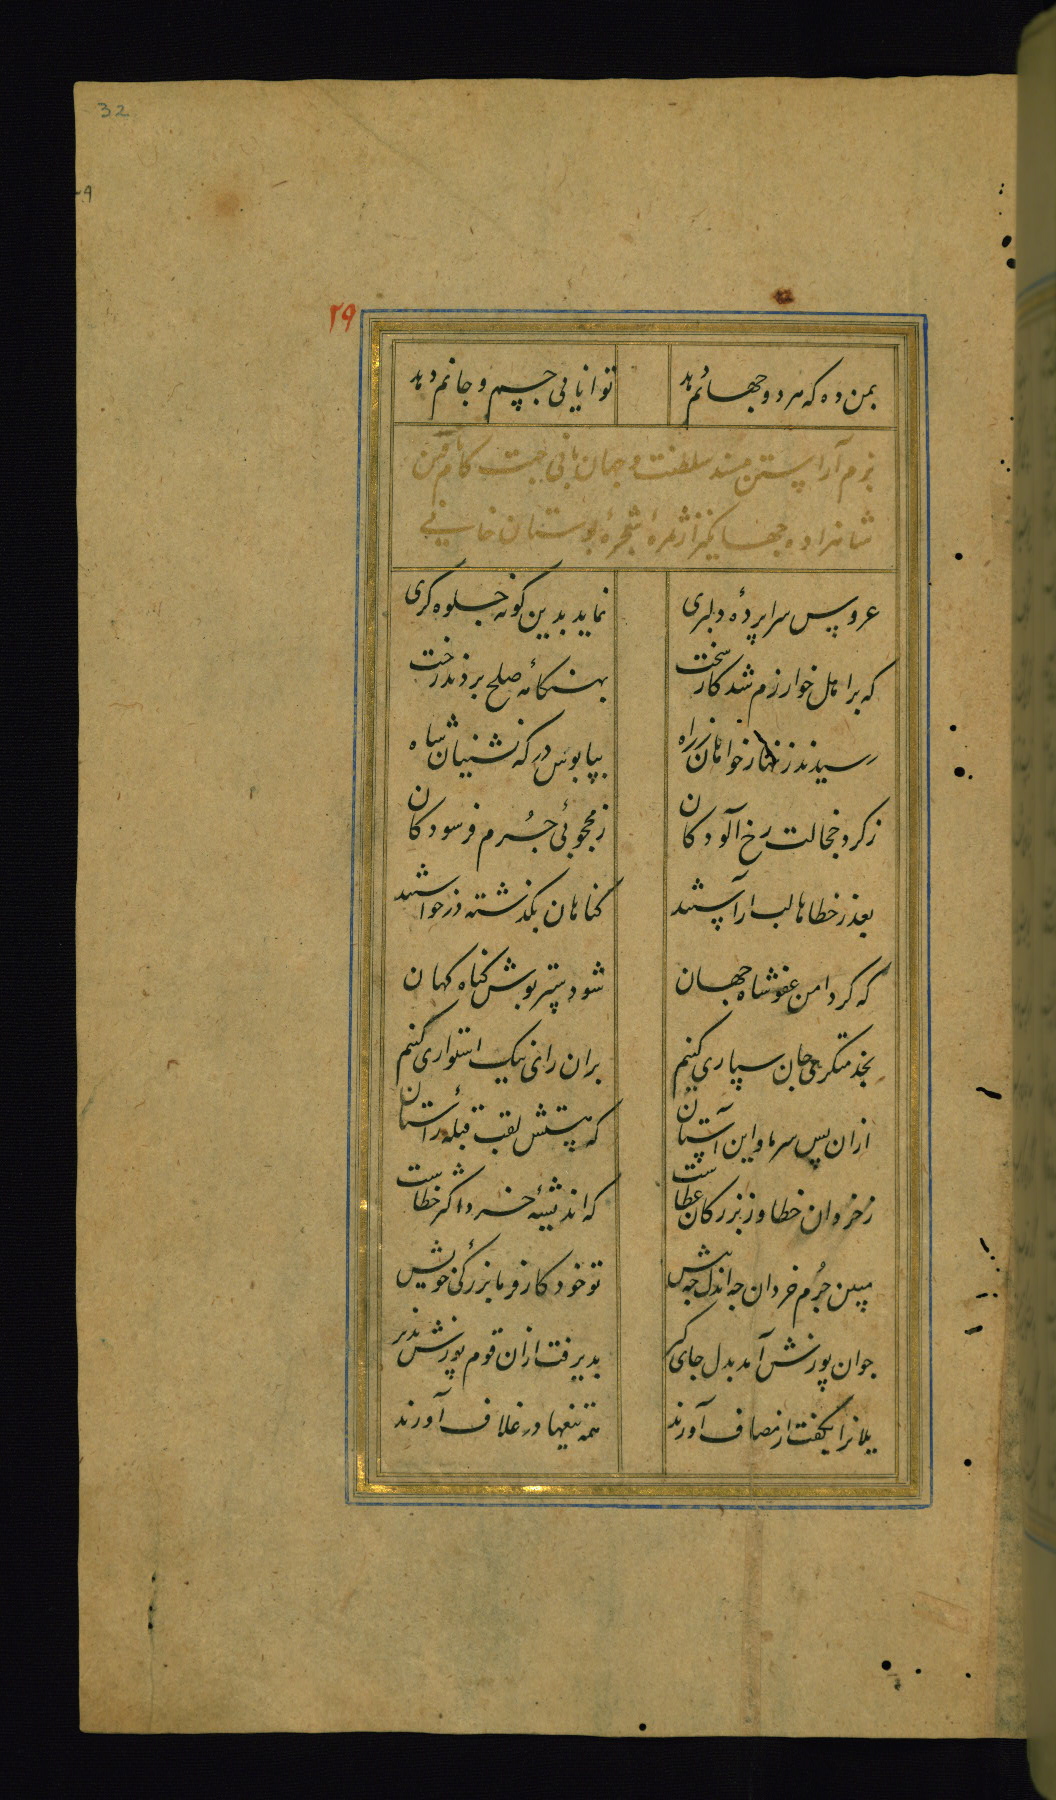 32
۲۹
بمن ده که هر دو جهانم دهد
توانایی جسم و جانم دهد
بزم آراستن مسند سلطنت و جهانبانی جهت
شاهزاده جهانگیر ثمرهٔ شجرهٔ بوستان خانی
عروس سراپردهٔ دلبری
نماید بدین گونه جلوه گری
که بر اهل خوارزم شد کار سخت
بهنگامهٔ صلح بردند رخت
رسیدند زنهار خواهان ز راه
بپابوس درگه نشینان شاه
ز گرد خجالت رخ آلودگان
ز محجوبئی جرم فرسودگان
بعذر خطاها لب آراستند
گناهان بگذشته درخواستند
که گر دامن عفو شاه جهان
شود ستر پوش گناه کهان
بخدمتگری جان سپاری کنیم
بران رای نیک استواری کنیم
ازان پس سر ما و این آستان
که هستش لقب قبلهٔ راستان
ز خردان خطا و ز بزرگان عطاست
که اندیشهٔ خرد اگر خطاست
مبین جرم خردان چه اندک چه بیش
تو خود کار فرما بزرگی خویش
جوان پوزش آمد بدل جای گیر
بدیرفت ازان قوم پوزش پذیر
یلانرا بگفت از مصاف آورند
همه تیغها در غلاف آورند